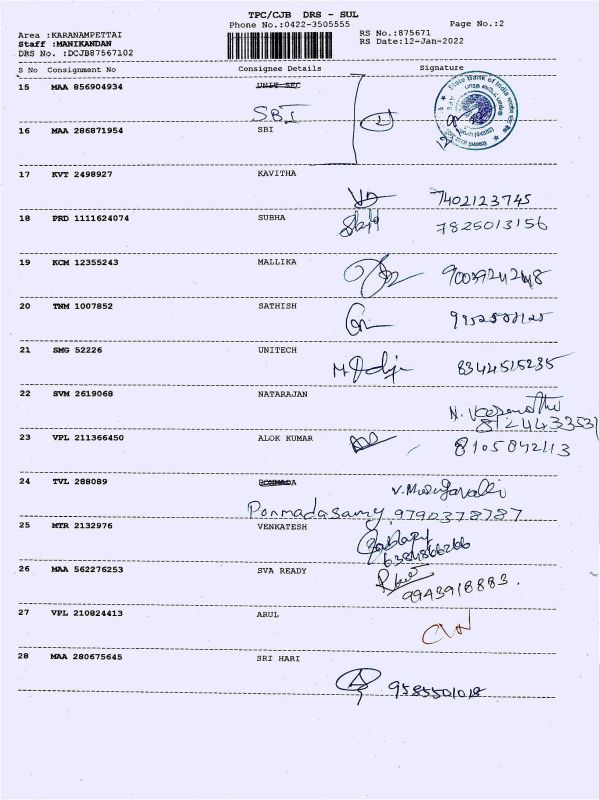 TPC/CJB DRS - SUL
Phone No.:0422-3505555
Page No.:2
Area :KARANAMPETTAI
Staff :MANIKANDAN
DRS No. :DCJB87567102
RS No.:875671
RS Date:12-Jan-2022
S No Consignment No Consignee Details Signature
15 MAA 856904934 UNIT SEC
SBI
State Bank of India
16 MAA 286871954 SBI
17 KVT 2498927 KAVITHA
7402123745
18 PRD 1111624074 SUBHA
7825013156
19 KCM 12355243 MALLIKA
20 TNM 1007852 SATHISH
21 SMG 52226 UNITECH
8344515235
22 SVM 2619068 NATARAJAN
8124433531
23 VPL 211366450 ALOK KUMAR
8105842113
24 TVL 288089
Ponmadasamy 9790378787
25 MTR 2132976 VENKATESH
6384866266
26 MAA 562276253 SVA READY
9943918883.
27 VPL 210824413 ARUL
28 MAA 280675645 SRI HARI
9585501018